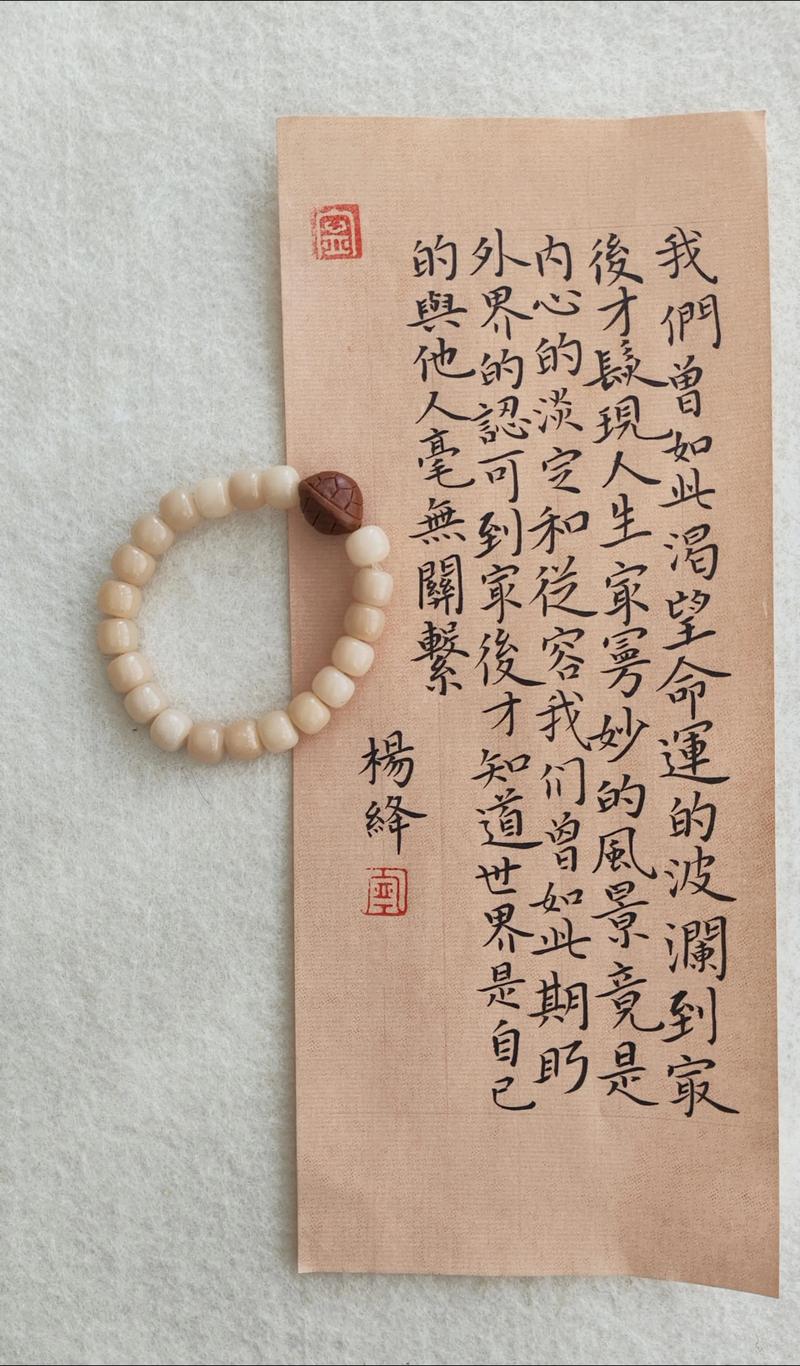 我們曾如此渴望命運的波瀾到㝡
後才髮現人生㝡曼妙的風景竟是
内心的淡定和從容我们曾如此期盼
外界的認可到㝡後才知道世界是自己
的與他人毫無關繫
楊絳